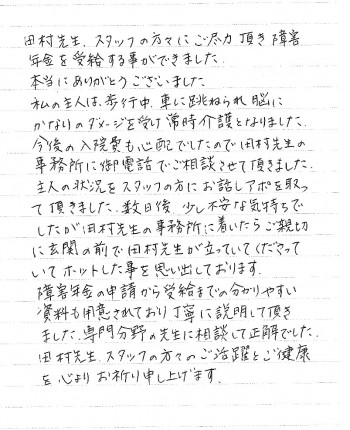 田村先生、スタッフの方々にご尽力頂き障害
年金を受給する事ができました。
本当にありがとうございました。
私の主人は、歩行中、車に跳ねられ脳に
かなりのダメージを受け常時介護となりました。
今後の入院費も心配でしたので田村先生の
事務所に御電話でご相談させて頂きました。
主人の状況をスタッフの方にお話しアポを取っ
て頂きました。数日後、少し不安な気持ちで
したが田村先生の事務所に着いたらご親切
に玄関の前で田村先生が立っていてくださって
いてホットした事を思い出しております。
障害年金の申請から受給までの分かりやすい
資料も用意されており丁寧に説明して頂き
ました。専門分野の先生に相談して正解でした。
田村先生、スタッフの方々のご活躍とご健康
を心よりお祈り申し上げます。